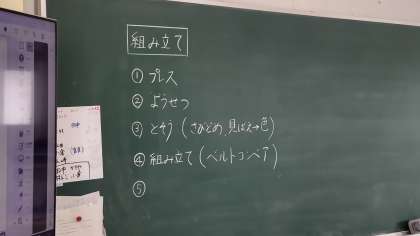 組み立て
① プレス
② ようせつ
③ とそう (さびどめ,見ばえ→色)
④ 組み立て (ベルトコンベア)
⑤